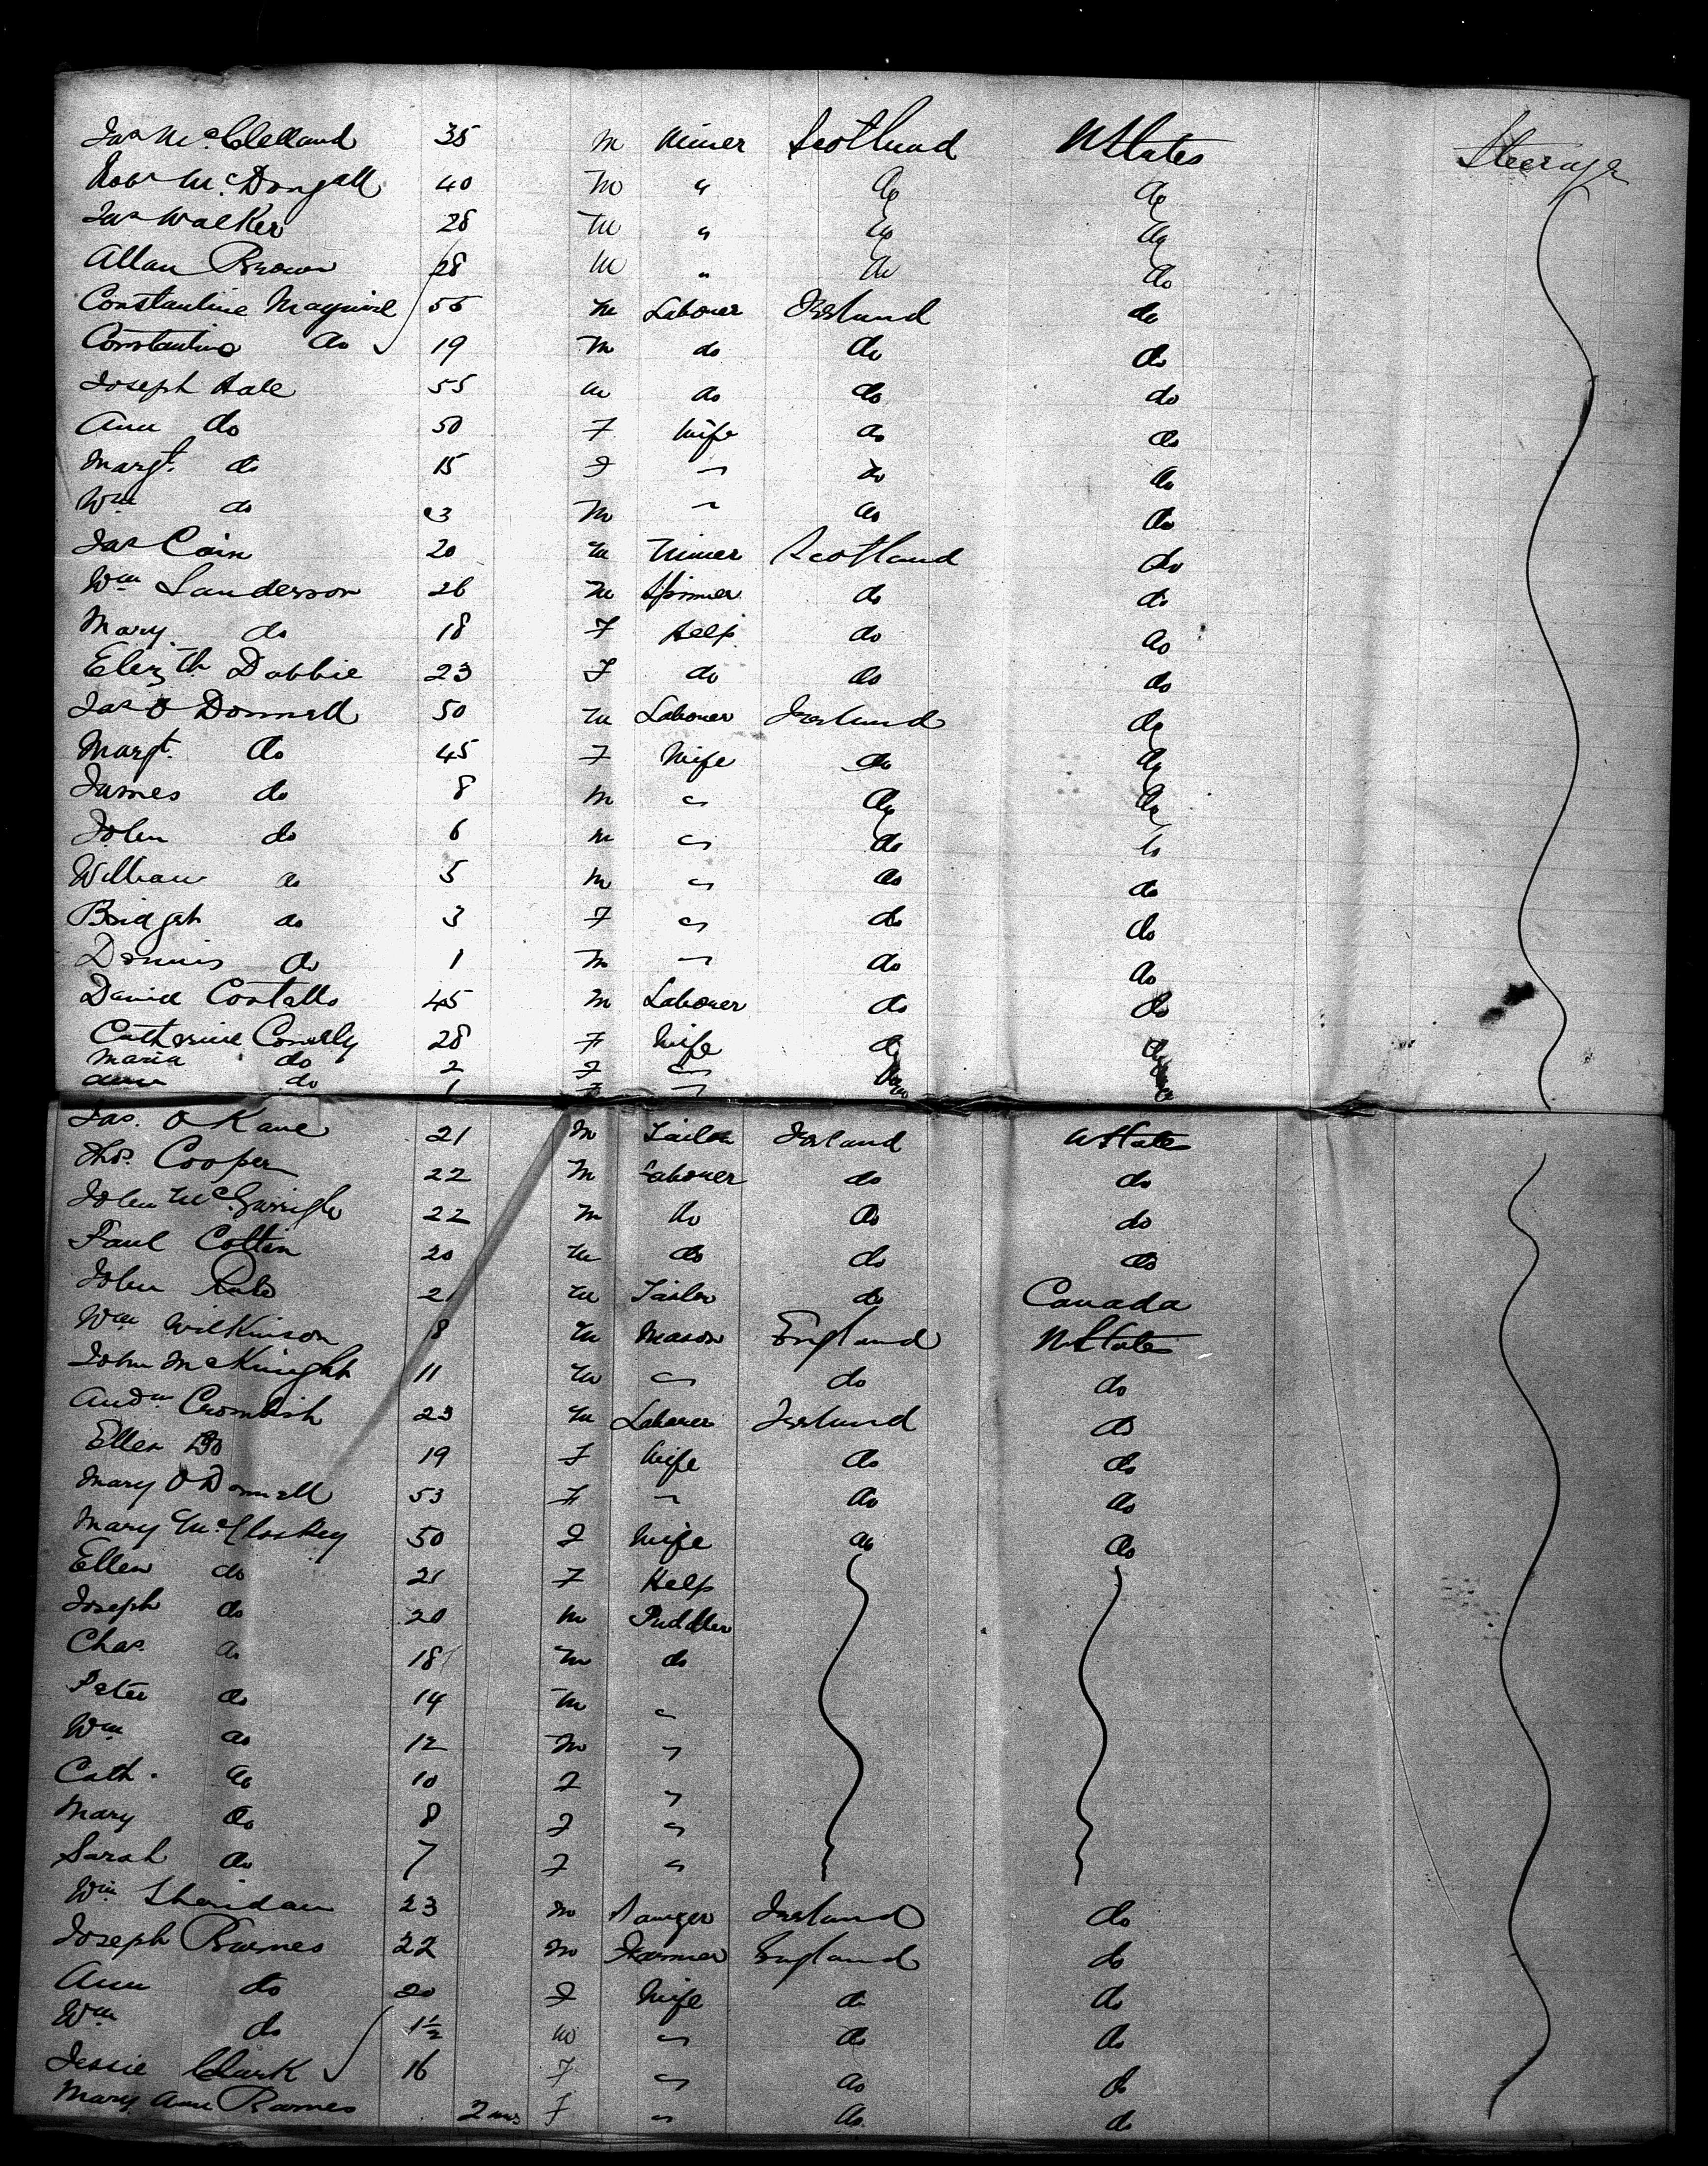 Jas McClelland 35 M Miner Scotland UStates Steerage
Robt McDougall 40 M " do do
Jas Walker 28 M " do do
Allan Brown 28 M " do do
Constantine Maguire 55 M Labourer Ireland do
Constantine do 19 M do do do
Joseph Hale 55 M do do do
Ann do 50 F Wife do do
Margt. do 15 F " do do
Wm do 3 M " do do
Jas Cain 20 M Miner Scotland do
Wm Sanderson 26 M Spinner do do
Mary do 18 F Help do do
Elizth Dobbie 23 F do do do
Jas O Donnell 50 M Labourer Ireland do
Margt. do 45 F Wife do do
James do 8 M " do do
John do 6 M " do do
William do 5 M " do do
Bridget do 3 F " do do
Dennis do 1 M " do do
David Costallo 45 M Labourer do do
Catherine Conolly 28 F Wife do do
Maria do 2 F "
Ann do 1 F "
Jas. O Kane 21 M Tailor Ireland UStates
Thos. Cooper 22 M Labourer do do
John McGarrigle 22 M do do do
Paul Cotten 20 M do do do
John 21 M Tailor do Canada
Wm Wilkinson 8 M Mason England UStates
John McKnight 11 M " do do
Andw Crombish 23 M Labourer Ireland do
Ellen Do 19 F Wife do do
Mary O Donnell 53 F " do do
Mary McCloskey 50 F Wife do do
Ellen do 21 F Help
Joseph do 20 M Puddler
Chas. do 18 M do
Peter do 14 M "
Wm do 12 M "
Cath. do 10 F "
Mary do 8 F "
Sarah do 7 F "
Wm Sheridan 23 M Ireland do
Joseph Barnes 22 M Farmer England do
Ann do 20 F Wife do do
Wm do 1½ M " do do
Jessie Clark 16 F " do do
Mary Ann Barnes 2 mos F " do do